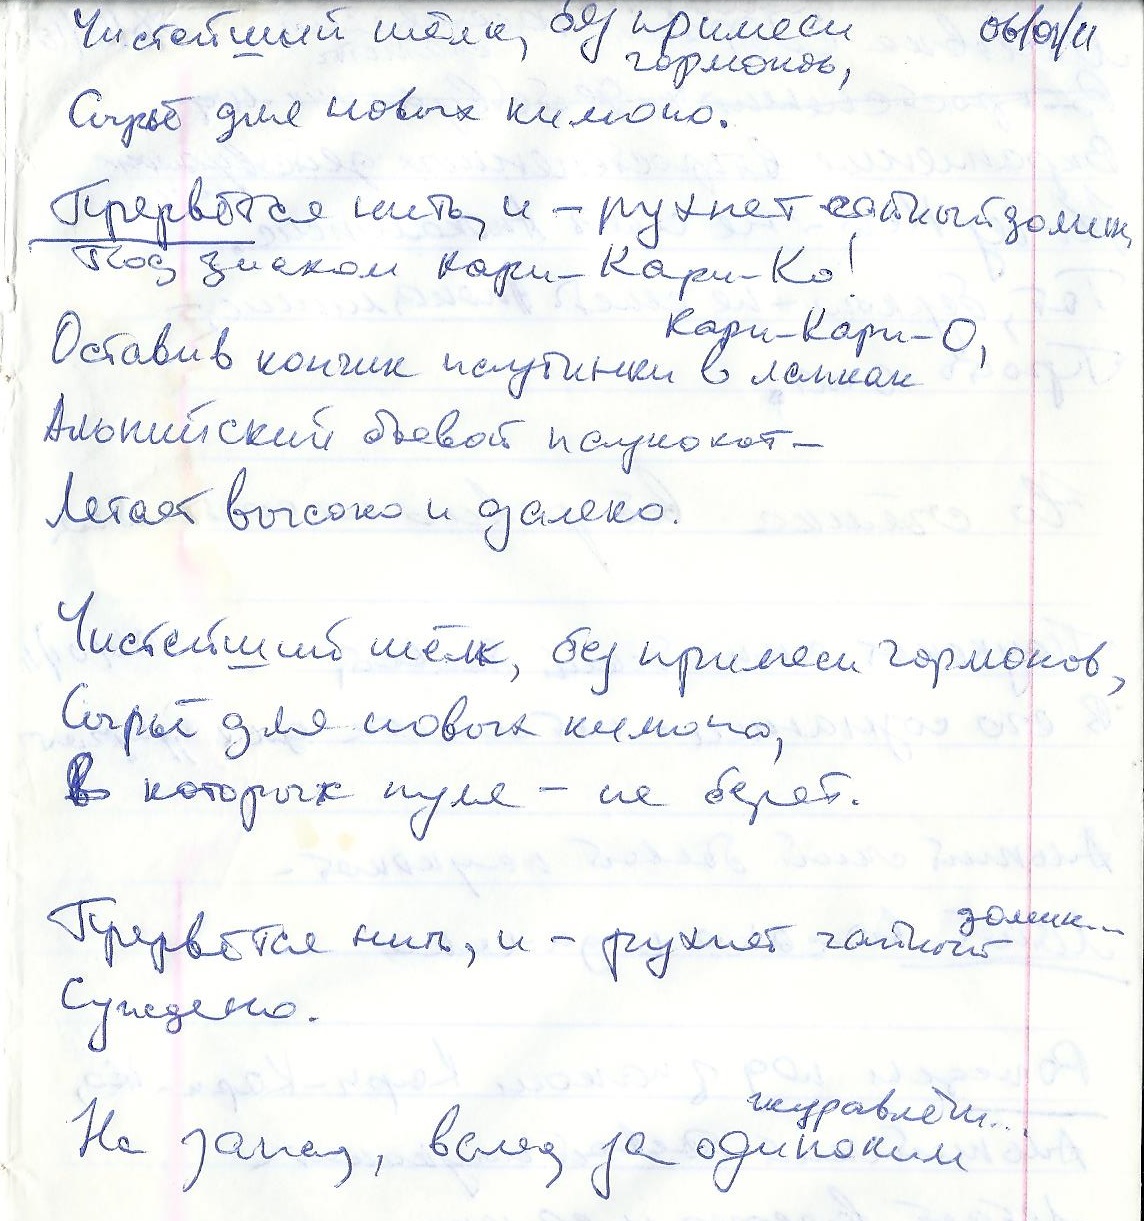 Чистейший шёлк, без примеси 06/01/11
гормонов,
Сырьё для новых кимоно.
Прервётся нить, и – рухнет чайный домик,
Под знаком Кари-Кари-Ко!
Кари-Кари-О,
Оставив кончик паутинки в лапках
Альпийский боевой паукокот –
Летает высоко и далеко.
Чистейший шёлк, без примеси гормонов,
Сырьё для новых кимоно,
В которых пуля – не берёт.
Прервётся нить, и – рухнет чайный домик...
Суждено.
На запад, вслед за одиноким журавлём...